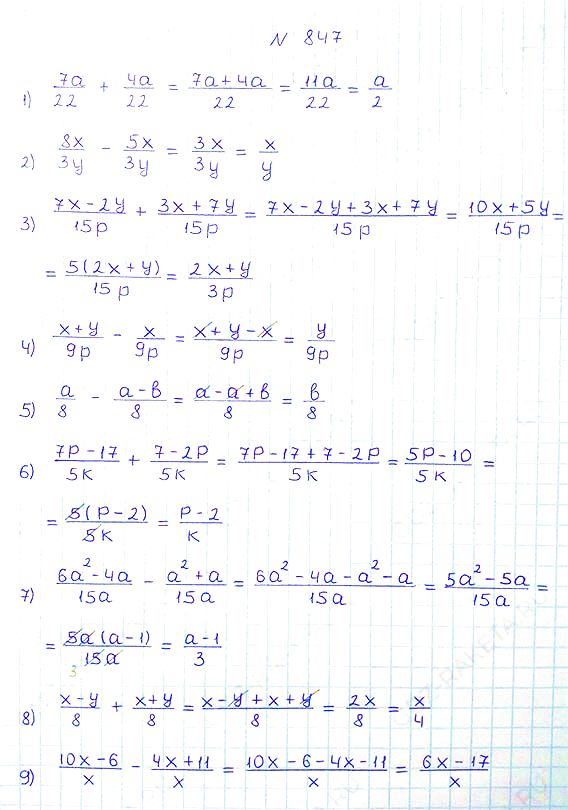 N 847
1) 7a/22 + 4a/22 = 7a+4a/22 = 11a/22 = a/2
2) 8x/3y - 5x/3y = 3x/3y = x/y
3) 7x-2y/15p + 3x+7y/15p = 7x-2y+3x+7y/15p = 10x+5y/15p =
= 5(2x+y)/15p = 2x+y/3p
4) x+y/9p - x/9p = x+y-x/9p = y/9p
5) a/8 - a-b/8 = a-a+b/8 = b/8
6) 7p-17/5k + 7-2p/5k = 7p-17+7-2p/5k = 5p-10/5k =
= 5(p-2)/5k = p-2/k
7) 6a²-4a/15a - a²+a/15a = 6a²-4a-a²-a/15a = 5a²-5a/15a =
= 5a(a-1)/15a 3 = a-1/3
8) x-y/8 + x+y/8 = x-y+x+y/8 = 2x/8 = x/4
9) 10x-6/x - 4x+11/x = 10x-6-4x-11/x = 6x-17/x